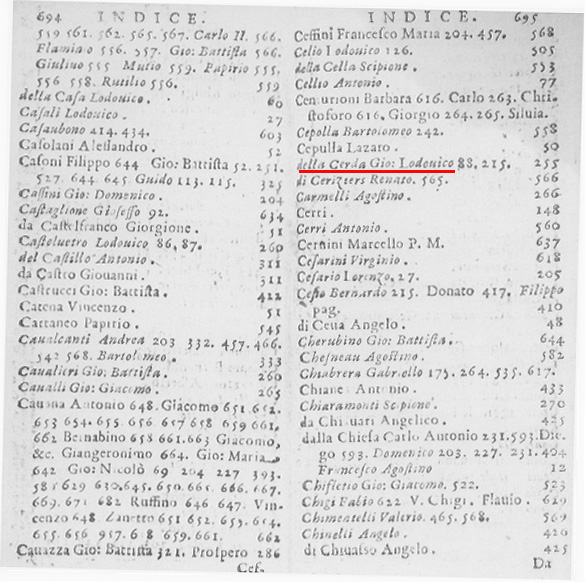 694 INDICE.
559 561. 562. 565. 567. Carlo II. 566.
Flaminio 556. 557. Gio: Battista 566.
Giulino 555 Mutio 559. Papirio 555.
556 558. Rutilio 556. 559
della Casa Lodouico. 60
Casali Lodouico. 27
Casaubono 414. 434. 603
Casolani Alessandro. 52
Casoni Filippo 644 Gio: Battista 52. 251.
527. 644 645 Guido 113. 115. 325
Cassini Gio: Domenico. 204
Castaglione Gioseffo 92. 634
da Castelfranco Giorgione. 51
Casteluetro Lodouico 86, 87. 260
del Castillo Antonio. 311
da Castro Giouanni. 311
Castrucci Gio: Battista. 422
Catena Vincenzo. 51
Cattaneo Papirio. 545
Caualcanti Andrea 203 332. 457. 466.
542 568. Bartolomeo. 333
Caualieri Gio: Battista. 260
Caualli Gio: Giacomo. 265
Cauana Antonio 648. Giacomo 651. 652.
653 654. 655. 656 657 658 659 661.
662 Bernabino 658 661. 663 Giacomo,
&c. Giangeronimo 664. Gio: Maria
642 Gio: Nicolò 69 204 227 393.
588 629 630. 645. 650. 665. 666. 667.
669. 671 682 Ruffino 646 647. Vin-
cenzo 648. Zanetto 651 652. 653. 654.
655. 656 957. 658 659. 661. 662
Cauazza Gio: Battista 321. Prospero 286
Cef-
INDICE. 695
Ceffini Francesco Maria 204. 457. 568
Celio Lodouico 126. 505
della Cella Scipione. 553
Cellio Antonio. 77
Centurioni Barbara 616. Carlo 263. Chri-
stoforo 616, Giorgio 264. 265. Siluia.
Cepolla Bartolomeo 242. 558
Cepulla Lazaro. 50
della Cerda Gio: Lodouico 88, 215. 255
di Ceriziers Renato. 565. 566
Carmelli Agostino. 266
Cerri. 148
Cerri Antonio. 560
Cernini Marcello P. M. 637
Cesarini Virginio. 618
Cesario Lorenzo, 27. 205
Cesio Bernardo 215. Donato 417. Filippo
pag. 410
di Ceua Angelo. 48
Cherubino Gio: Battista. 644
Chesneau Agostino. 582
Chiabrera Gabriello 175. 264. 535. 617.
Chiane Antonio. 433
Chiaramonti Scipione. 270
da Chiauari Angelico.
dalla Chiesa Carlo Antonio 231. 593. Die-
go 593. Domenico 203. 227. 231. 404
Francesco Agostino 12
Chifletio Gio: Giacomo. 522. 523
Chigi Fabio 622 V. Chigi. Flauio. 629
Chimentelli Valerio. 465. 568. 569
Chinelli Angelo. 420
di Chiuasso Angelo. 425
Da